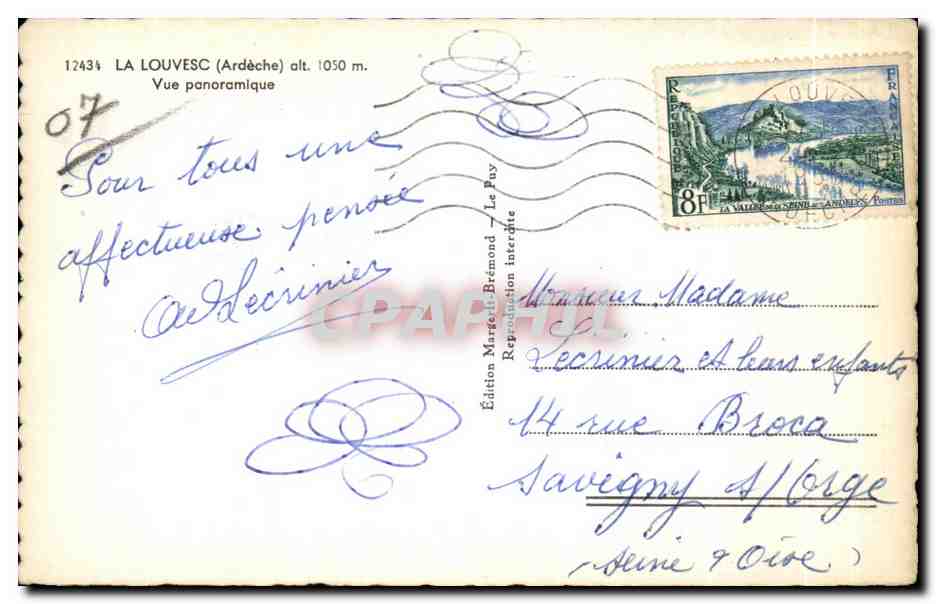 12434 LA LOUVESC (Ardèche) alt. 1050 m.
Vue panoramique
07
Pour tous une
affectueuse pensée
Lécrinier
Édition Margerit-Brémond — Le Puy
Reproduction interdite
REPUBLIQUE
FRANÇAISE
8F
LA VALLÉE DE LA SEINE AUX ANDELYS Postes
CPAPHIL
Monsieur Madame
Lécrinier et leurs enfants
14 rue Broca
Savigny s/Orge
(Seine & Oise)